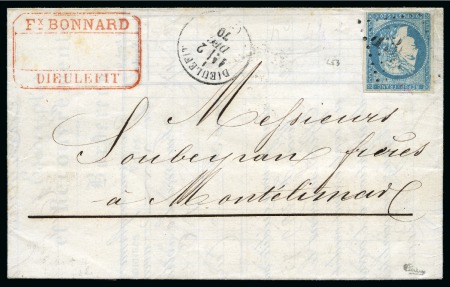 Fx BONNARD
DIEULEFIT
DIEULEFIT
2
DEC
70
Messieurs
Soubeyran frères
à Montélimar